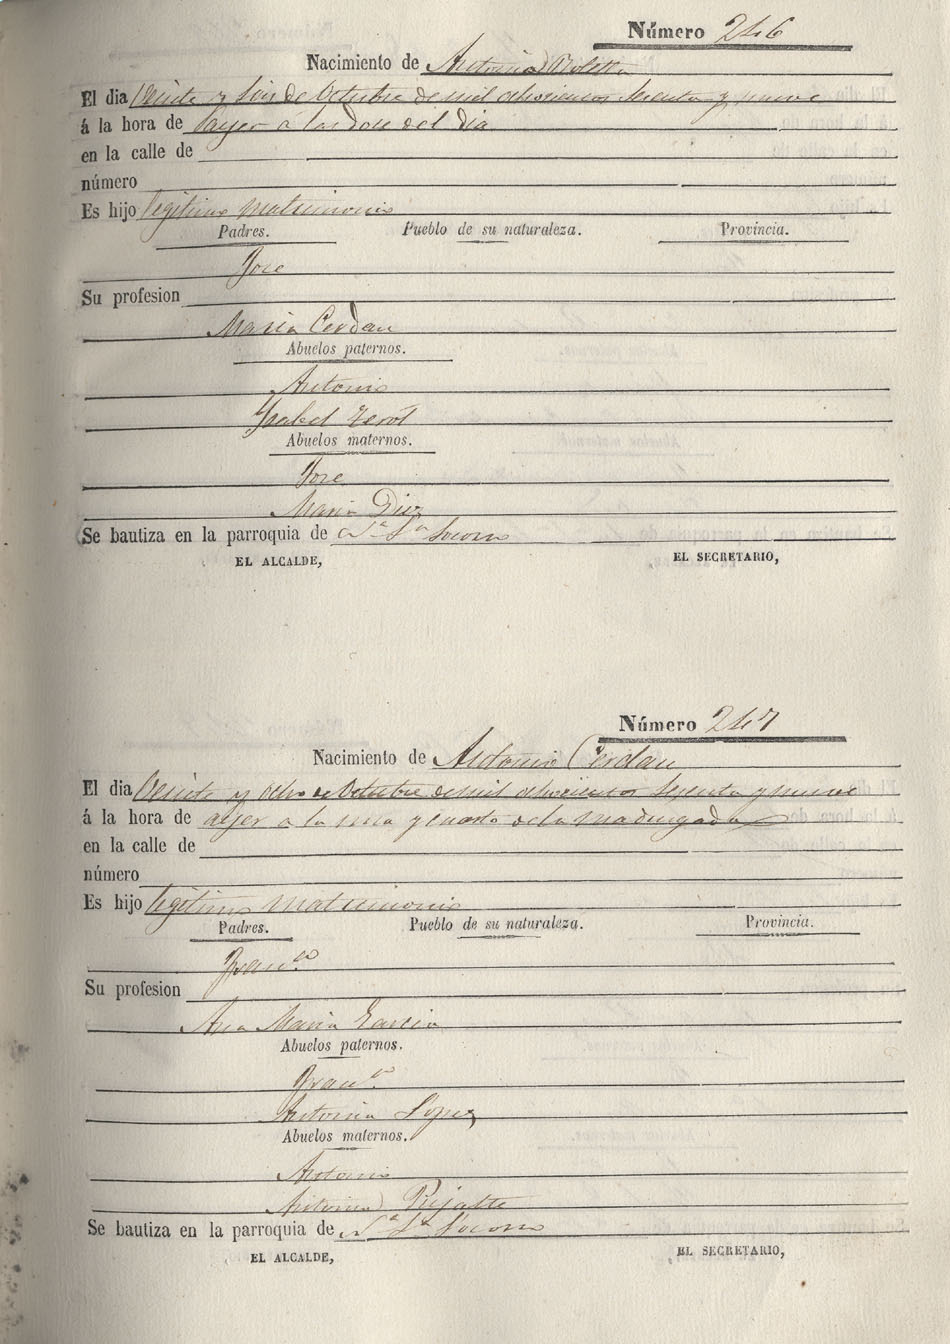 Número 246
Nacimiento de Antonia
El dia Veinte y Seis de Octubre de mil ochocientos Sesenta y nueve
á la hora de ayer a las doce del dia
en la calle de
número
Es hijo legitimo matrimonio
Padres. Pueblo de su naturaleza. Provincia.
Jose
Su profesion
Maria Cerdan
Abuelos paternos.
Antonio
Ysabel
Abuelos maternos.
Jose
Maria Diez
Se bautiza en la parroquia de Socorro
EL ALCALDE, EL SECRETARIO,
Número 247
Nacimiento de Antonio Cerdan
El dia Veinte y ocho de Octubre de mil ochocientos Sesenta y nueve
á la hora de ayer a la una y cuarto de la madrugada
en la calle de
número
Es hijo legitimo matrimonio
Padres. Pueblo de su naturaleza. Provincia.
Fran.co
Su profesion
Ana Maria Garcia
Abuelos paternos.
Fran.co
Antonia Lopez
Abuelos maternos.
Antonio
Antonia
Se bautiza en la parroquia de Socorro
EL ALCALDE, EL SECRETARIO,